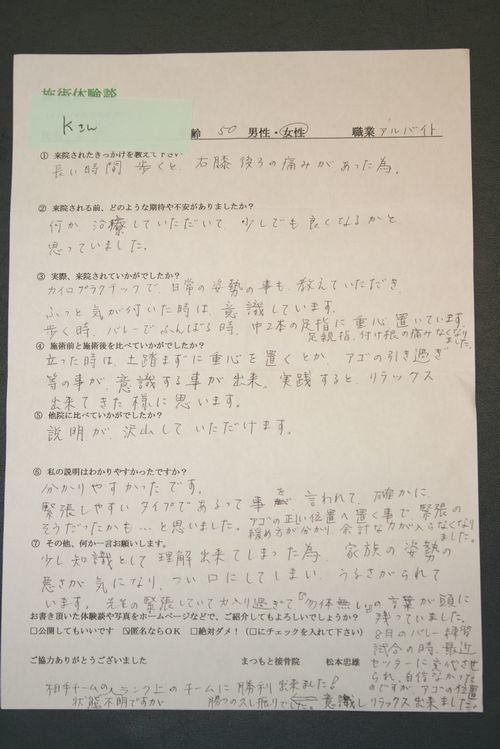 施術体験談
Kさん
齢 50 男性・女性 職業 アルバイト
① 来院されたきっかけを教えて下さい
長い時間 歩くと、右膝後ろの痛みがあった為。
② 来院される前、どのような期待や不安がありましたか？
何か 治療していただいて、少しでも良くなるかと
思っていました。
③ 実際、来院されていかがでしたか？
カイロプラクチックで、日常の姿勢の事も、教えていただき、
ふっと気が付いた時は、意識しています。
歩く時、バレーでふんばる時、中2本の足指に重心置いています。
足親指、付け根の痛みなくなりました。
④ 施術前と施術後を比べていかがでしたか？
立った時は、土踏まずに重心を置くとか、アゴの引き過ぎ
等の事が、意識する事が出来、実践すると、リラックス
出来てきた様に思います。
⑤ 他院に比べていかがでしたか？
説明が、沢山していただけます。
⑥ 私の説明はわかりやすかったですか？
分かりやすかったです。
緊張しやすいタイプであるって事を 言われて、確かに、
そうだったかも…と思いました。
アゴの正しい位置へ置く事で、緊張の
緩め方が分かり、余計な力が入らなくなりました。
⑦ その他、何か一言お願いします。
少し知識として 理解出来てしまった為、家族の姿勢の
悪さが 気になり、つい口にしてしまい、うるさがられて
います。
の緊張していて力入り過ぎて『勿体無い』の言葉が頭に
残っていました。
お書き頂いた体験談や写真をホームページなどで、ご紹介してもよろしいでしょうか？
□公開してもいいです ☑匿名ならOK □絶対ダメ！（□にチェックを入れて下さい）
8月のバレー練習
試合の時、最近
センターに交代させ
られ、自信なかった
のですが、アゴの位置
意識しリラックス出来ました。
ご協力ありがとうございました まつもと接骨院 松本忠雄
相手チームのランク上のチームに勝利出来ました！
状態不明ですが 勝つの久し振りでした